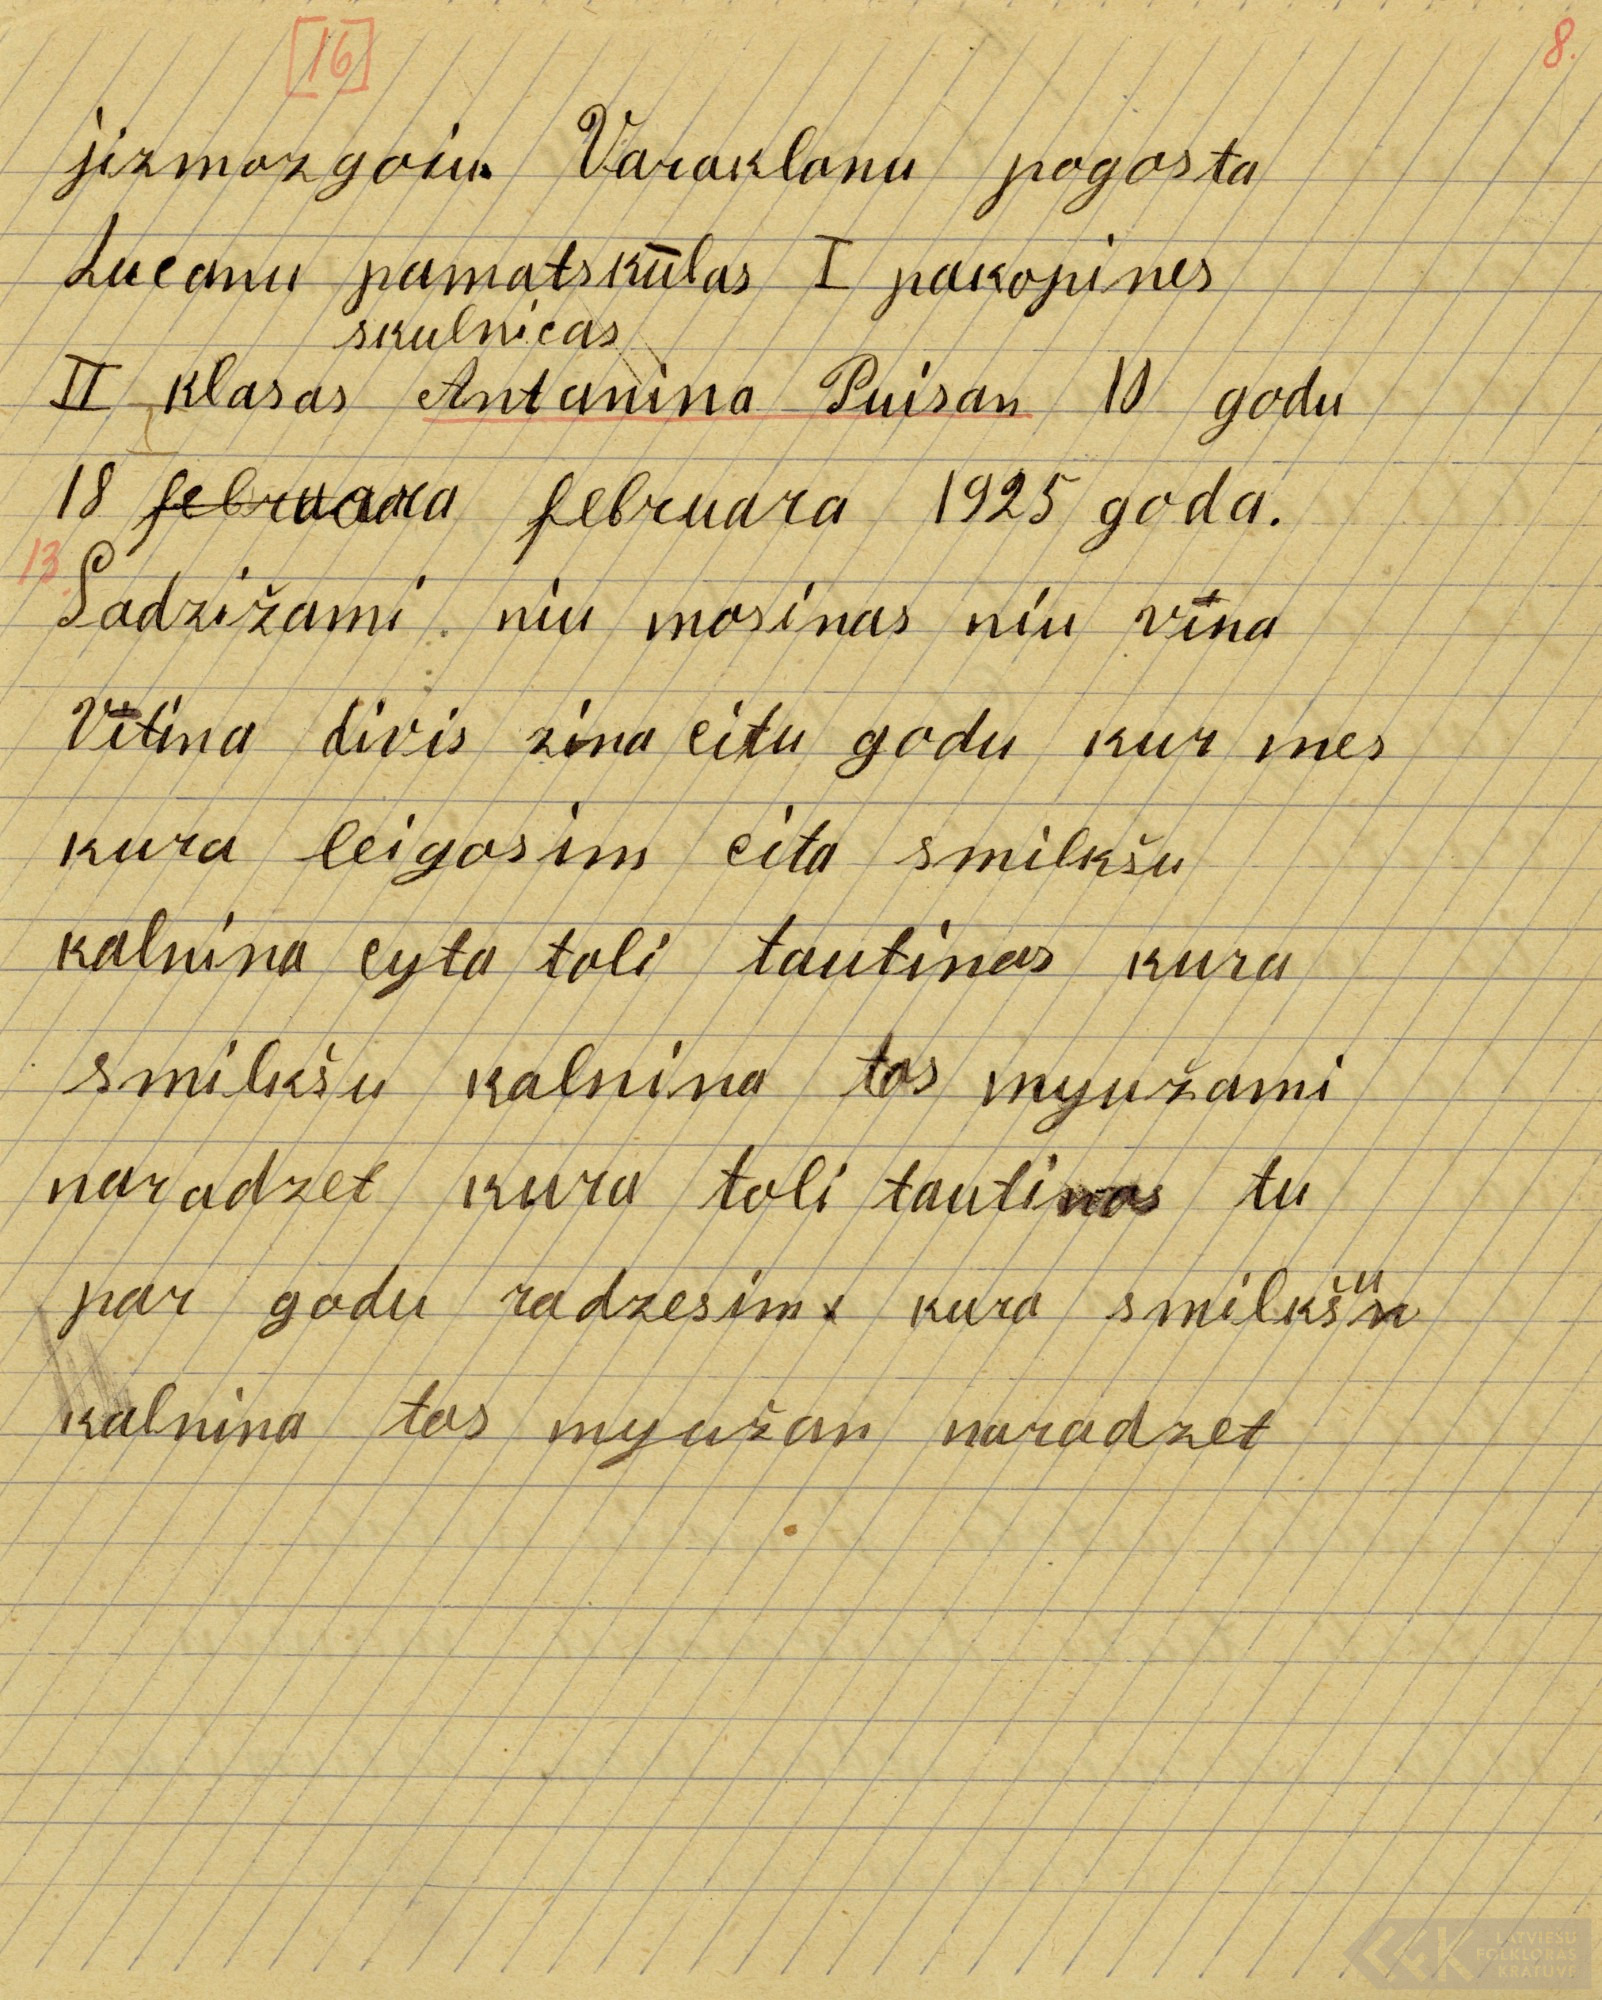 [16] 8.
jizmozgoiu. Varaklanu pogosta
Lucanu pamatskūlas I pakopines
skulnicas
II klasas Antanina Puisan 10 godu
18 februara februara 1925 goda.
13. Sadzižami niu mosinas niu vīna
Vītina divis zina citu godu kur mes
kura leigosim cita smilkšu
kalnina cyta toli tautinas kura
smilkšu kalnina tos myužami
naradzet kura toli tautinas tu
par godu radzesim. kura smilkšu
kalnina tos myužan naradzet
LATVIEŠU
FOLKLORAS
KRĀTUVE